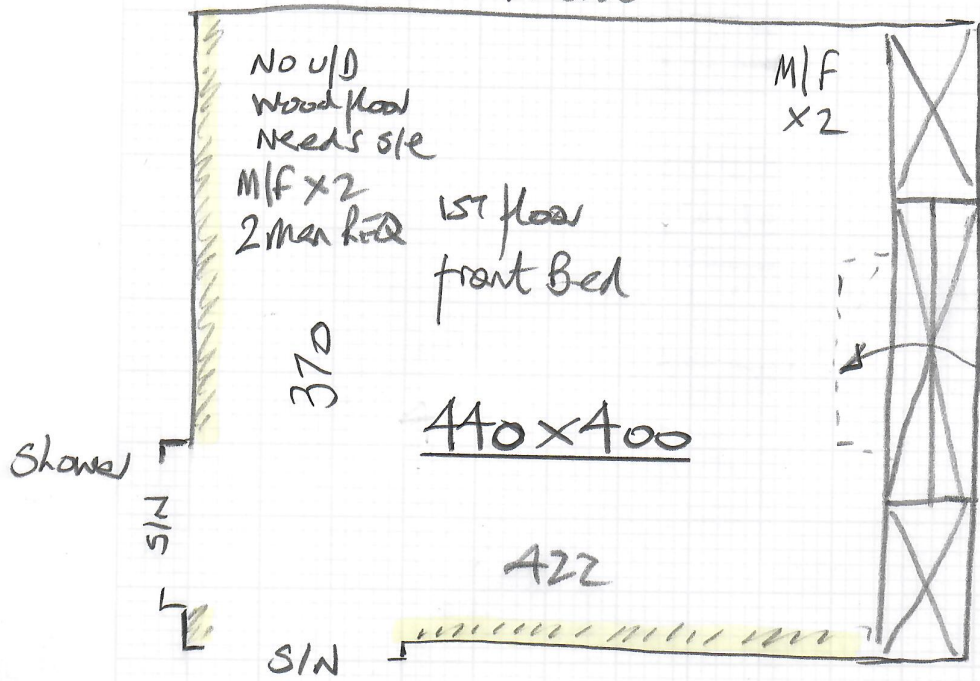 No U/D
Wood floor
Needs s/e
M/F x2
2 man REQ
M/F
x2
1ST floor
front Bed
370
440x400
Shower
S/N
422
S/N